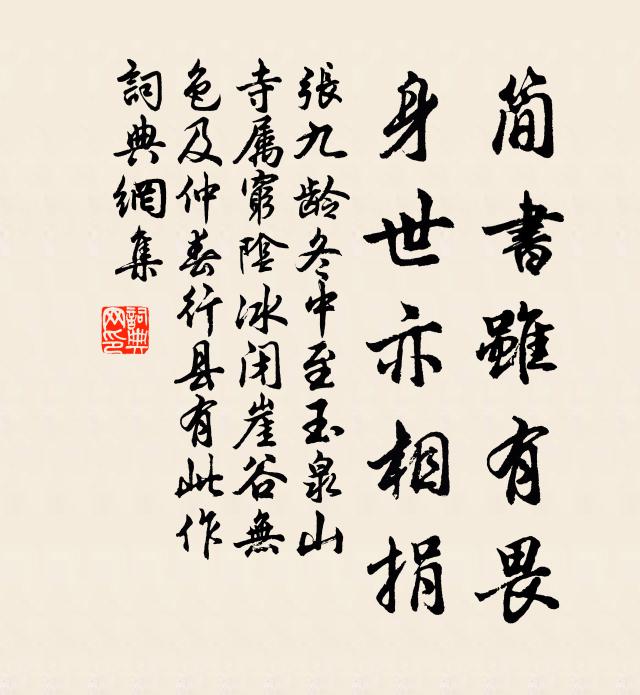 简書雖有畏
身世亦相捐
張九龄冬中至玉泉山
寺属窮陰冰闭崖谷無
色及仲春行县有此作
詞典網集
詞典
网印